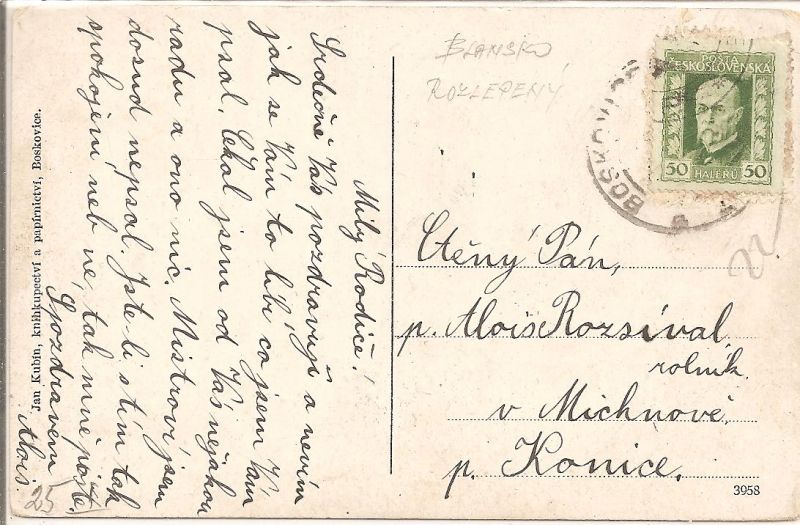 Milý Rodiče!
Srdečně Vás pozdravuji a nevím
jak se Vám to líbí co jsem Vám
psal. Čekal jsem od Vás nějakou
radu a ono nic. Mistrovi jsem
dosud nepsal. Jste-li s tím tak
spokojeni neb ne, tak mně pište.
S pozdravem
Alois.
Jan Kubín, knihkupectví a papírnictví, Boskovice.
25
BLANSKO
ROZLEPENÝ
POŠTA
ČESKOSLOVENSKÁ
50 HALÉŘŮ 50
BOSKOVICE
Ctěný Pán,
p. Alois Rozsíval
rolník
v Michnově,
p. Konice.
3958